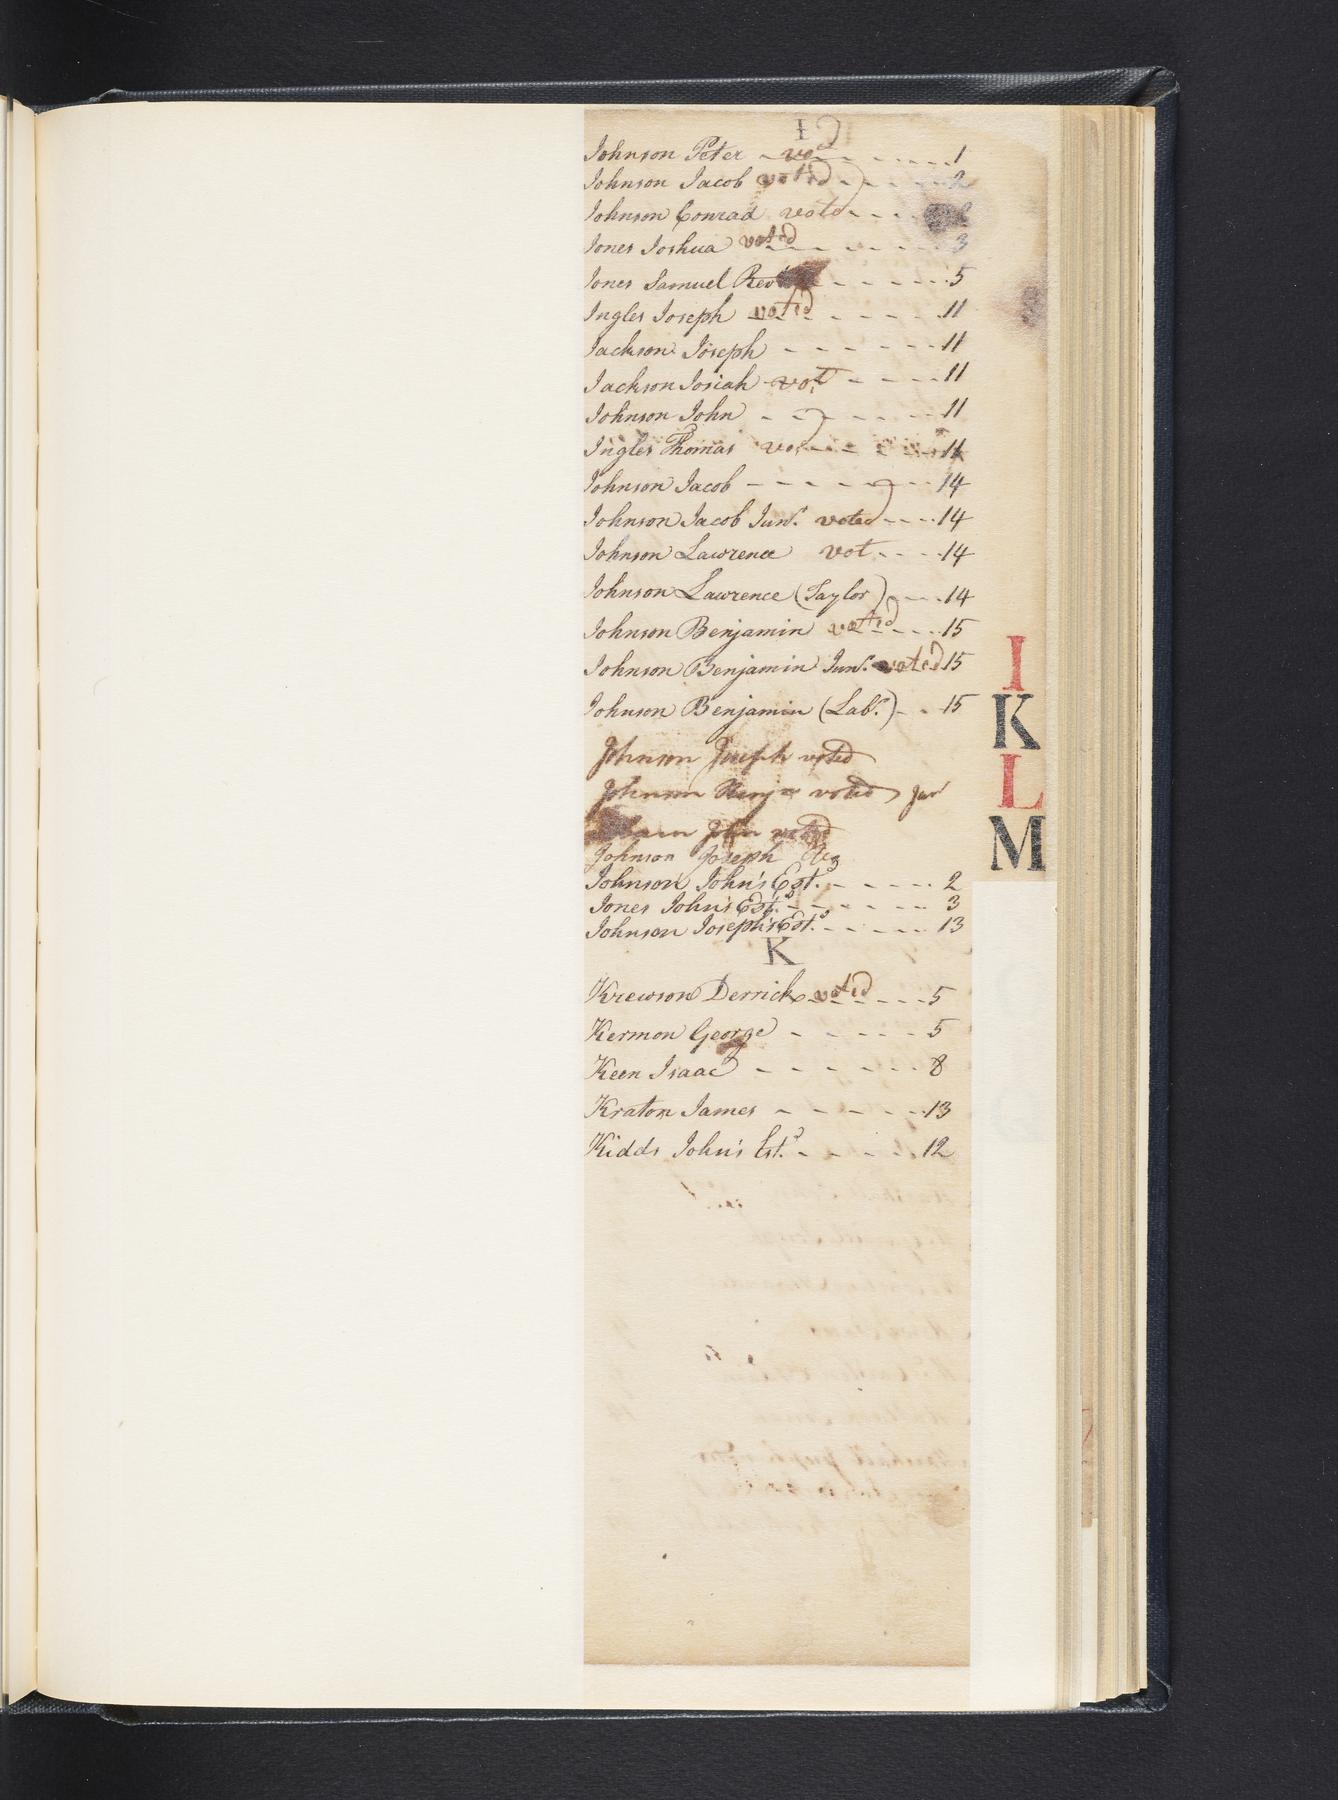 I
Johnson Peter - vo - - - - - 1
Johnson Jacob voted - - - - 2
Johnson Conrad voted - - -
Jones Joshua voted - - - - 3
Jones Samuel Rev - - - - - 5
Ingles Joseph voted - - - - - 11
Jackson Joseph - - - - - - 11
Jackson Josiah vot - - - - 11
Johnson John - - - - - - 11
Ingles Thomas vo - - - - 11
Johnson Jacob - - - - - - 14
Johnson Jacob Junr. voted - - - 14
Johnson Lawrence vot - - - 14
Johnson Lawrence (Taylor) - - - 14
Johnson Benjamin voted - - - 15
Johnson Benjamin Junr. voted 15
Johnson Benjamin (Labr.) - - 15
Johnson Joseph voted
Johnson voted Junr
John voted
Johnson Joseph
Johnson John's Estd. - - - - - 2
Jones John's Estd. - - - - - - 3
Johnson Joseph's Estd. - - - - - 13
K
Krewson Derrick voted - - - - 5
Kermon George - - - - - 5
Keen Isaac - - - - - - 8
Kraton James - - - - - - 13
Kidds John's Estd. - - - - - 12
I
K
L
M